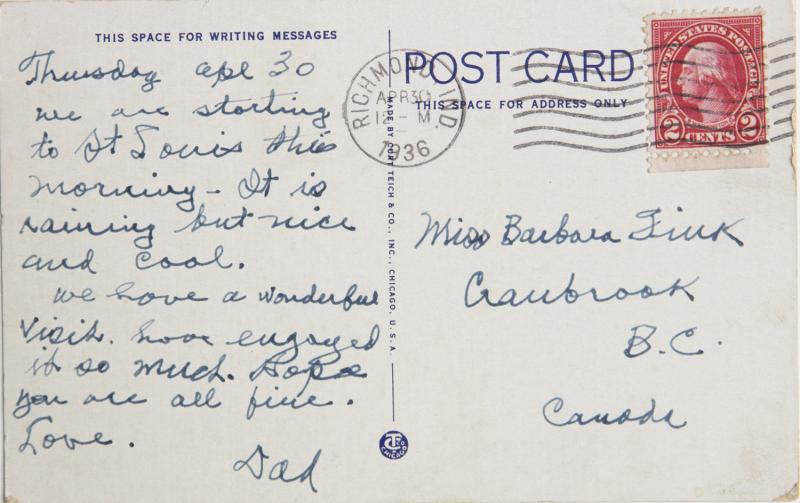 THIS SPACE FOR WRITING MESSAGES
Thursday Apl 30
we are starting
to St Louis this
morning - It is
raining but nice
and cool.
We have a wonderful
visit. have engoyed
it so much. Hope
you are all fine.
Love.
Dad
MADE BY CURT TEICH & CO., INC., CHICAGO, U.S.A.
POST CARD
THIS SPACE FOR ADDRESS ONLY
RICHMOND IND.
APR 30
M
1936
UNITED STATES POSTAGE
2 CENTS 2
Miss Barbara Fink
Cranbrook
B.C.
Canada
CHICAGO